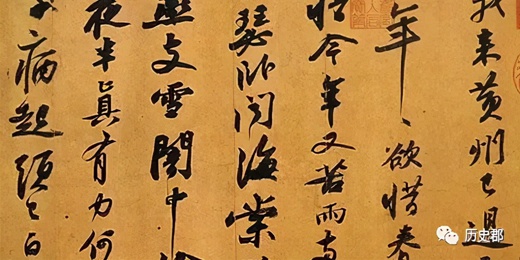 我来黄州已過
年〻欲惜春
惜今年又苦雨兩
瑟卧聞海棠
燕支雪闇中
夜半真有力何
病起須已白
历史郡